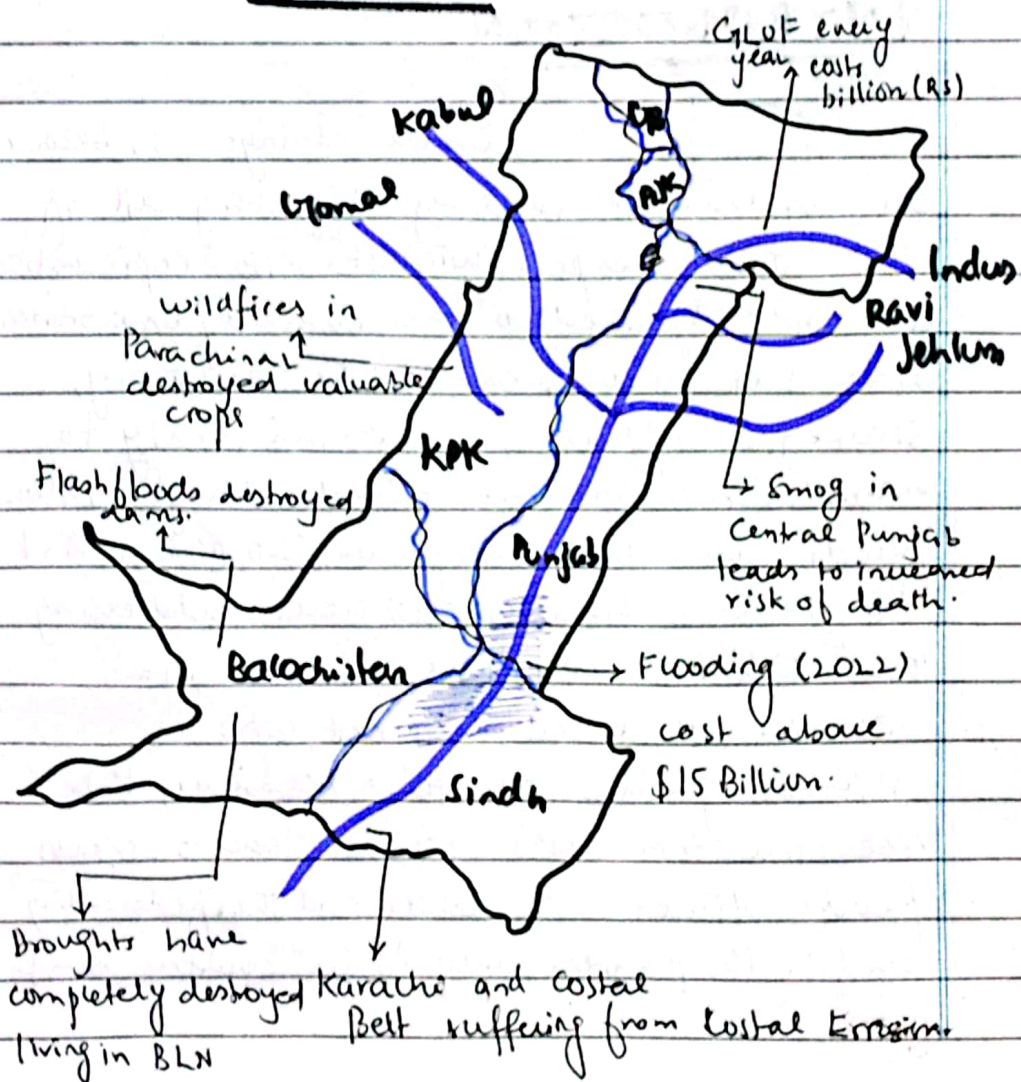 GLOF every
year costs
billion (Rs)
Kabul
Gomal
AJK
Indus
Ravi
Jehlum
wildfires in
Parachinar
destroyed valuable
crops
KPK
Flash floods destroyed
dams.
Punjab
Smog in
Central Punjab
leads to increased
risk of death.
Balochistan
Flooding (2022)
cost above
$15 Billion.
Sindh
Droughts have
completely destroyed
living in BLN
Karachi and Costal
Belt suffering from Costal Erosion.